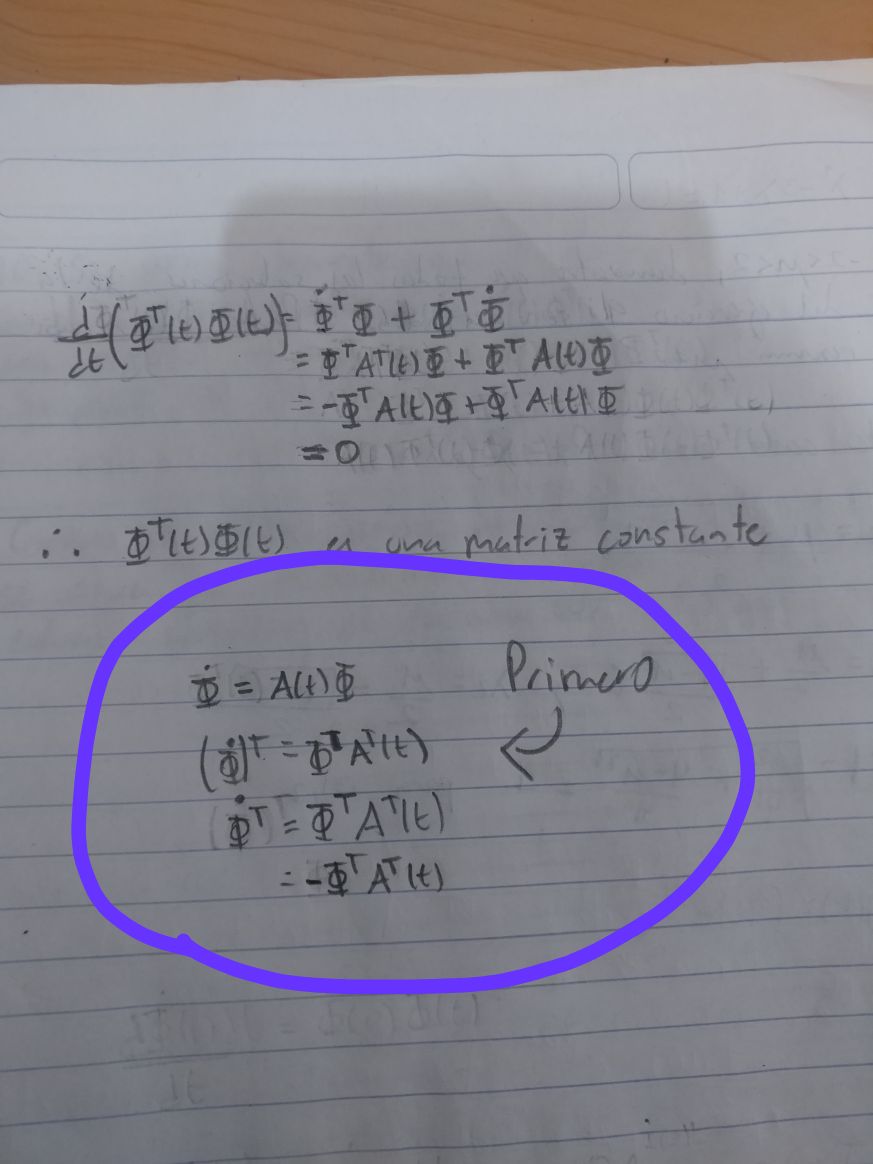 d/dt (Φᵀ(t) Φ(t)) = Φ̇ᵀ Φ + Φᵀ Φ̇
= Φᵀ Aᵀ(t) Φ + Φᵀ A(t) Φ
= -Φᵀ A(t) Φ + Φᵀ A(t) Φ
= 0
∴ Φᵀ(t) Φ(t) es una matriz constante
Primero
Φ̇ = A(t) Φ
(Φ̇)ᵀ = Φᵀ Aᵀ(t)
Φ̇ᵀ = Φᵀ Aᵀ(t)
= -Φᵀ Aᵀ(t)